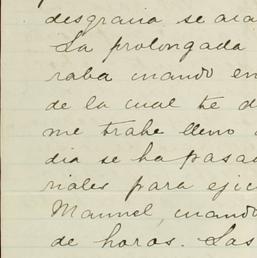 desgracia, se aca
La prolongada
raba cuando en
de la cual te d
me trahe lleno
dia se ha pasa
riales para ejer
Manuel, cuando
de horas. Las